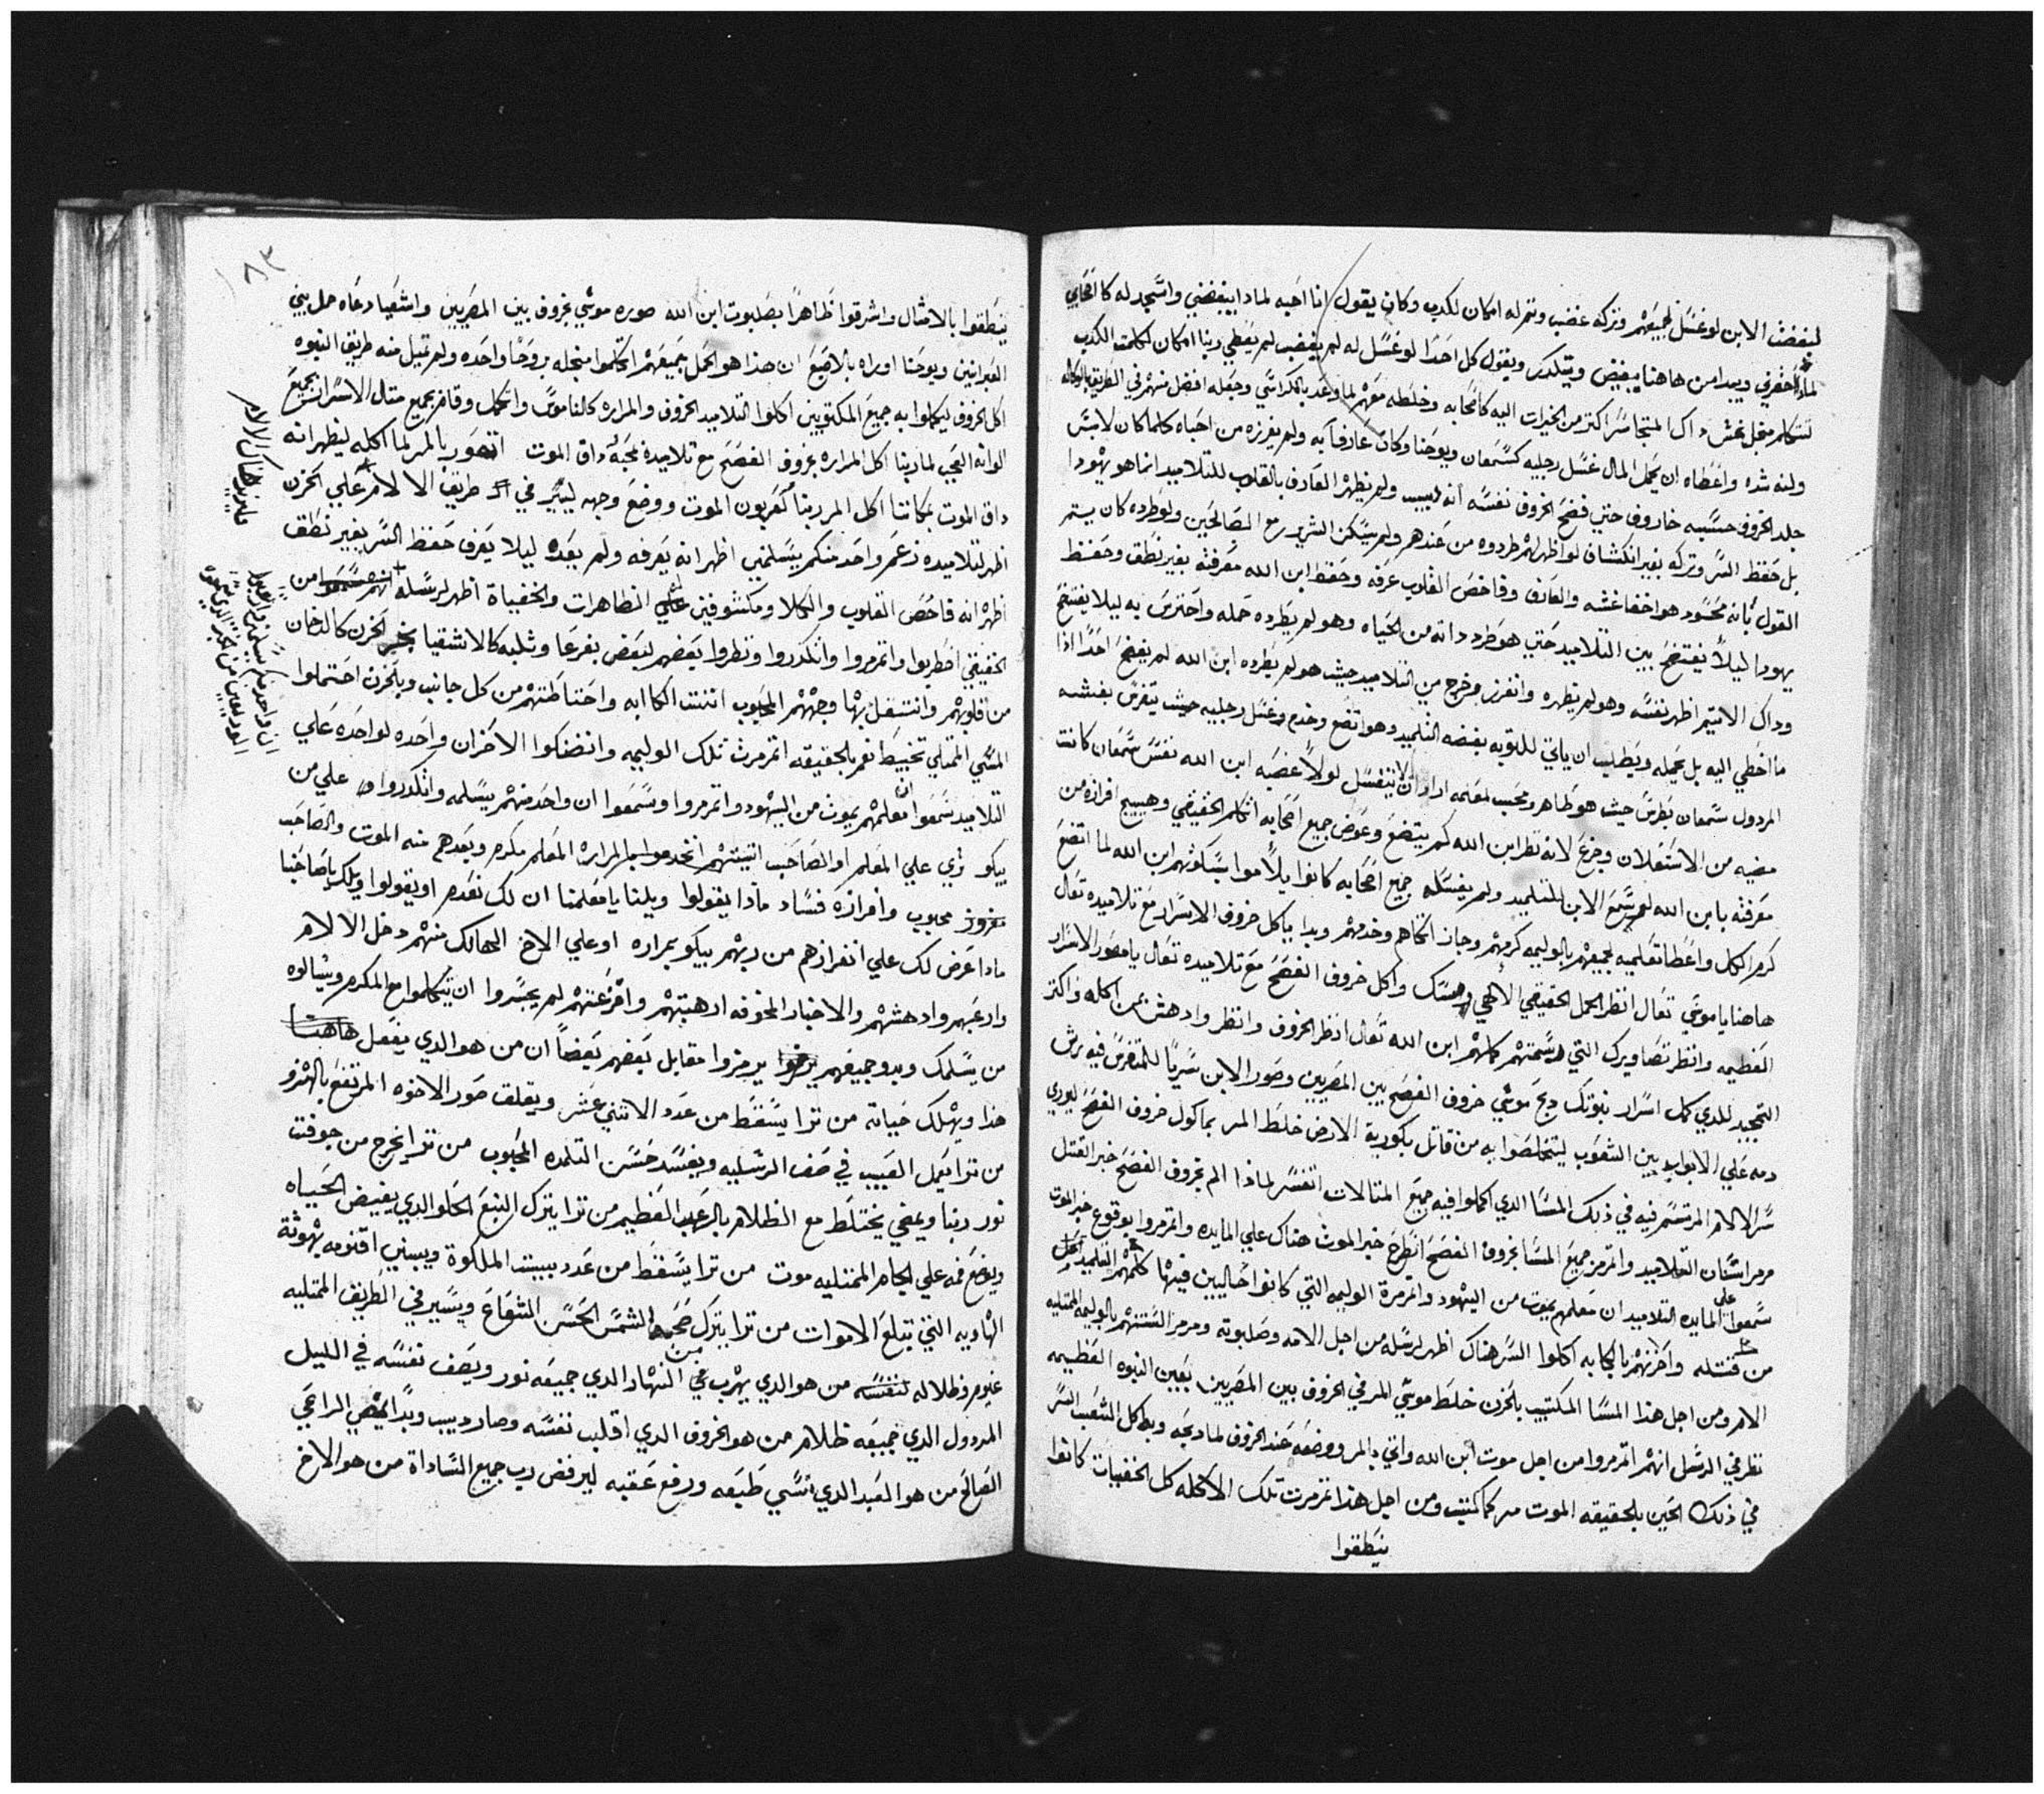 لبغض الابن لو غسل لجميعهم وتركه غضب وتم له امكان لكدب وكان يقول انا احبه لمادا يبغضني واسجد له كاصحابي
لمادا حقرني ويبدا من هاهنا يبغض ويتكدر ويقول كل احدا لو غسل له لم يغضب لم يعطي ربنا امكان لكلمة الكدب
لتتكلم من اجل داك اكتر من الخيرات اليه كاصحابه وخلطه معهم لما وعد بالكراسي وجعله افضل منهم في الطريق بالوكاله
ولته شده واعطاه ان يحمل المال غسل رجليه كسمعان ويوحنا وكان عارفا به ولم يفرزه من احباه كلما كان لابس
جلد الخروف حسبه خاروف حتي فضح الخروف نفسه انه ديب ولم يظهر العارف بالقلوب للتلاميد انما هو يهودا
بل حفظ السر وتركه بغير انكشاف لو اظهر لهم طردوه من عندهم ولم يسكن الشرير مع الصالحين ولو طرده كان يستمر
القول بانه محسود هو اخفا غشه والعارف وفاحص القلوب عرفه وحفظ ابن الله معرفته بغير نطق وحفظ
يهودا ليلا يفتضح بين التلاميد حتي هو طرد داته من الحياه وهو لم يطرده حمله واحترس به ليلا يفتضح
وداك الاتيم اظهر نفسه وهو لم يظهره وانفرز وخرج من التلاميد حيث هو لم يطرده ابن الله لم يفضح احدا ادا
ما اخطي اليه بل يحمله ويطلب ان ياتي للتوبه بغضه التلميد وهو اتضع وخدم وغسل رجليه حيث يتفرس بغشه
المردول سمعان بطرس حيث هو طاهر ومحب لمعلمه اراد ان لا يتغسل لولا غصبه ابن الله نفس سمعان كانت
مضيه من الاستعلان وجزع لانه نظر ابن الله كم يتضع وعوض جميع اصحابه اتكلم الحقيقي وهييج افرازه من
معرفته بابن الله لم يسمع الابن للتلميد ولم يغسله جميع اصحابه كانوا يلاموا بسكوتهم ابن الله لما اتضع
كرم الكل واعطا تعليمه لجميعهم بالوليمه كرمهم وجاز اتكاهم وخدمهم وبدا ياكل خروف الاسرار مع تلاميده تعال
هاهنا يا موسي تعال انظر الحمل الحقيقي الالهي واكل خروف الفصح مع تلاميده تعال يا مصور الاسرار
العظيمه وانظر تصاويرك التي رسمتهم كلهم ابن الله تعال انظر الخروف وانظر وادهش بمن اكله واكتر
التمجيد للدي كمل اسرار نبوتك دبح موسي خروف الفصح بين المصريين وصور الابن سريا للمتفرس فيه برش
دمه علي الابواب بين الشعوب ليتخلصوا به من قاتل بكورية الارض خلط المر بماكول خروف الفصح ليوري
سر الالام المرتسم فيه في ذلك المسا الدي اكملوا فيه جميع المتالات اتفسر لماذا المر بخروف الفصح خبر القتل
مرمر اسنان التلاميد واتمرمر جميع المسا بخروف الفصح انطرح خبر الموت هناك علي المايده واتمرمروا بوقوع خبر الموت
سمعوا علي المايده التلاميد ان معلمهم يموت من اليهود واتمرمرة الوليمه التي كانوا جالسين فيها كلهم التلميد
من قتله واحزنهم بالكابه اكلوا السر هناك اظهر لرسله من اجل الامه وصلبوته ومرمر السنتهم بالوليمه الممتليه
الام ومن اجل هذا المسا المكتيب بالحزن خلط موسي المر في الخروف بين المصريين بعين النبوه العظيمه
نظر في الرسل انهم اتمرمروا من اجل موت ابن الله واتي بالمر ووضعه عند الخروف لما دبحه وبط كل الشعب السر
في ذلك الحين بالحقيقه الموت مر كما كتيب ومن اجل هذا اتمرمرت تلك الاكله كل الخفيات كانوا
ينطقوا
١٨٣
ينطقوا بالامثال واشرقوا ظاهرا بصلبوت ابن الله صوره موسي بخروف بين المصريين واشعيا دعاه حمل بني
العبرانيين ويوحنا اوراه بالاصبع ان هذا هو الحمل جميعهم اتكلموا من اجله بروحا واحده ولم تميل منه طريق النبوه
اكل الخروف ليكملوا به جميع المكتوبين اكلوا التلاميد الخروف والمراره كالناموس واتكمل وقام بجميع متال الاسرار بجميع
الوانه العجب لما ربنا اكل المراره بخروف الفصح مع تلاميده بمحبة داق الموت اتصور بالمر لما اكله ليظهر انه
داق الموت بمكاننا اكل المر ربنا كعربون الموت ووضع وجهه ليسير في طريق الالام علي الحزن
اظهر لتلاميده نعم واحد منكم يسلمني اظهر انه يعرفه ولم بعده ليلا يعرف حفظ السر بغير نطق
اظهر انه فاحص القلوب والكلا ومكشوفين الظاهرات والخفياة اظهر لرسله من
الحقيقي اضطربوا واتمرمروا وانكدروا ونظروا بعضهم لبعض بفزعا وثلبه كالاشقيا الحزن كالدخان
من قلوبهم وانتشعل بها وجههم المحبوب اتنتت الكاابه واحتاطتهم من كل جانب وبالحزن احتملوا
المسي الممتلي تخبيط نعم بالحقيقه اتمرمرت تلك الوليمه وانضنكوا الاحزان واحده لواحده علي
التلاميد سمعوا ان معلمهم يموت من اليهود واتمرمروا وسمعوا ان واحد منهم يسلمه وانكدروا علي من
يبكو تري علي المعلم او الصاحب اتنيتهم المراره المعلم مكرم وبعدهم منه الموت والصاحب
مفروز محبوب وافرازه فساد ماذا يقولوا ويلنا يا معلمنا ان لك نعدم او يقولوا ويلك يا صاحبنا
ماذا عرض لك علي انفرازهم من ربهم يبكو بمراره او علي الاخ الهالك منهم دخل الالام
وارعبهم وادهشهم والاخبار المخوفه ارهبتهم وافزعتهم لم يجسروا ان يتكلموا مع المكرم ويسالوه
من يسلمك وبدو جميعهم يرمزوا مقابل بعضهم بعضا ان من هو الدي يفعل هاهنا
هذا ويهلك حياته من ترا يسقط من عدد الاتني عشر ويقلق صور الاخوه المرتفع بالهزو
من ترا يعمل العيب في صف الرسليه ويفسد حسن التلمده المحبوب من ترا يخرج من جوقت
نور ربنا ويمضي يختلط مع الظلام بالرعب العظيم من ترا يترك النبع الحلو الدي يفيض الحياه
ويضع فمه علي الجام الممتليه موت من ترا يسقط من عدد بيت الملكوة ويبني اقنومه بهوتة
الهاويه التي تبلع الاموات من ترا يترك صحبة الشمس الحسن الشعاع ويسير في الطريق الممتليه
غيوم وظلاله لنفسه من هو الدي يهرب من النهار الدي جميعه نور ويصف نفسه في الليل
المردول الدي جميعه ظلام من هو الخروف الدي اقلب نفسه وصار ديب وبدا يعض الراعي
الصالح من هو العبد الدي نسي طبعه ورفع عقبه ليرفض رب جميع الساداة من هو الاخ